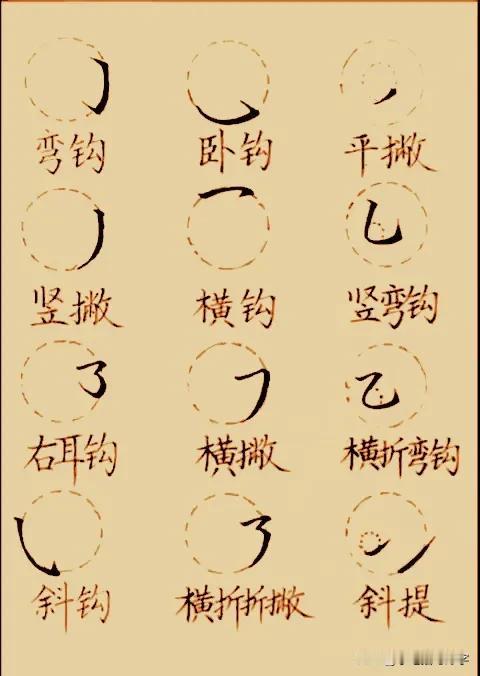 弯钩 卧钩 平撇
竖撇 横钩 竖弯钩
右耳钩 横撇 横折弯钩
斜钩 横折折撇 斜提